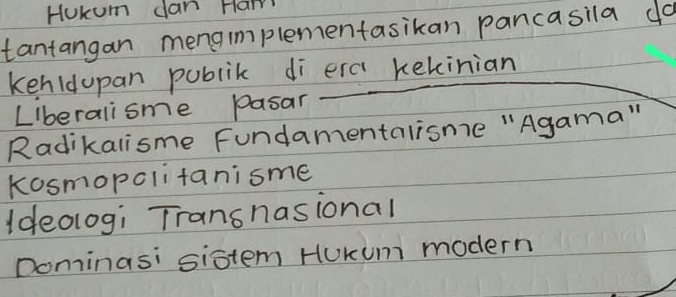 Hukum dan Ham
tantangan mengimplementasikan pancasila da
kehidupan publik di era kekinian
Liberalisme pasar
Radikalisme Fundamentalisme "Agama"
Kosmopolitanisme
Ideologi Transnasional
Dominasi sistem Hukum modern